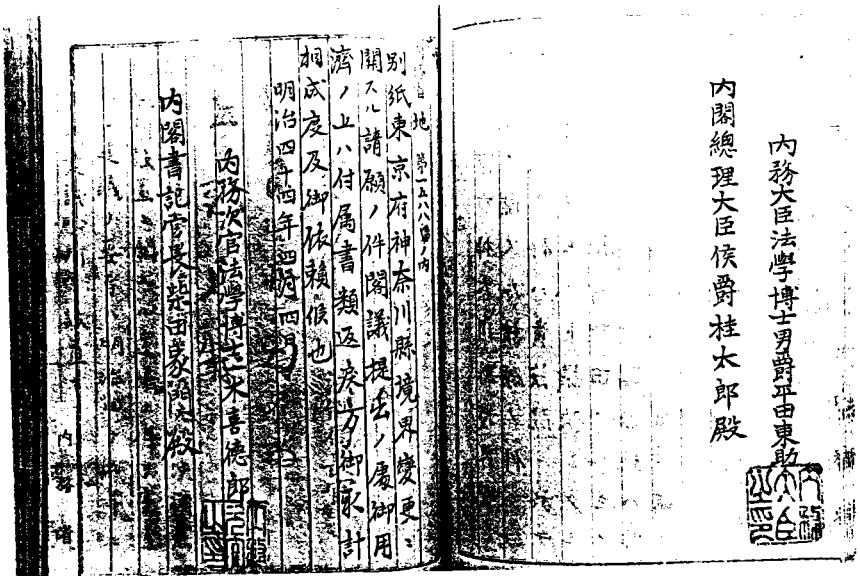 内務大臣法學博士男爵平田東助
内務大臣之印
内閣總理大臣侯爵桂太郎殿
地第一五八八号ノ内
別紙東京府神奈川縣境界變更ニ
関スル請願ノ件閣議提出ノ處御用
濟ノ上ハ付属書類返戻方御取計
相成度及御依頼候也
明治四十四年四月四日
内務次官法學博士一木喜徳郎
内閣書記官長柴田家門殿
内務省